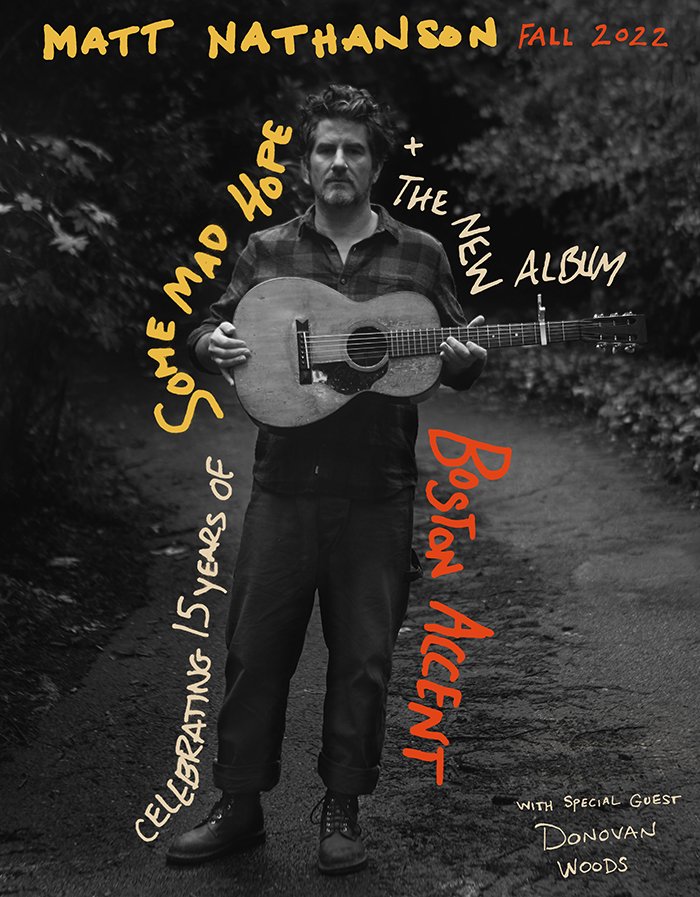 MATT NATHANSON FALL 2022
CELEBRATING 15 YEARS OF
SOME MAD HOPE
+ THE NEW ALBUM
BOSTON ACCENT
WITH SPECIAL GUEST
DONOVAN
WOODS